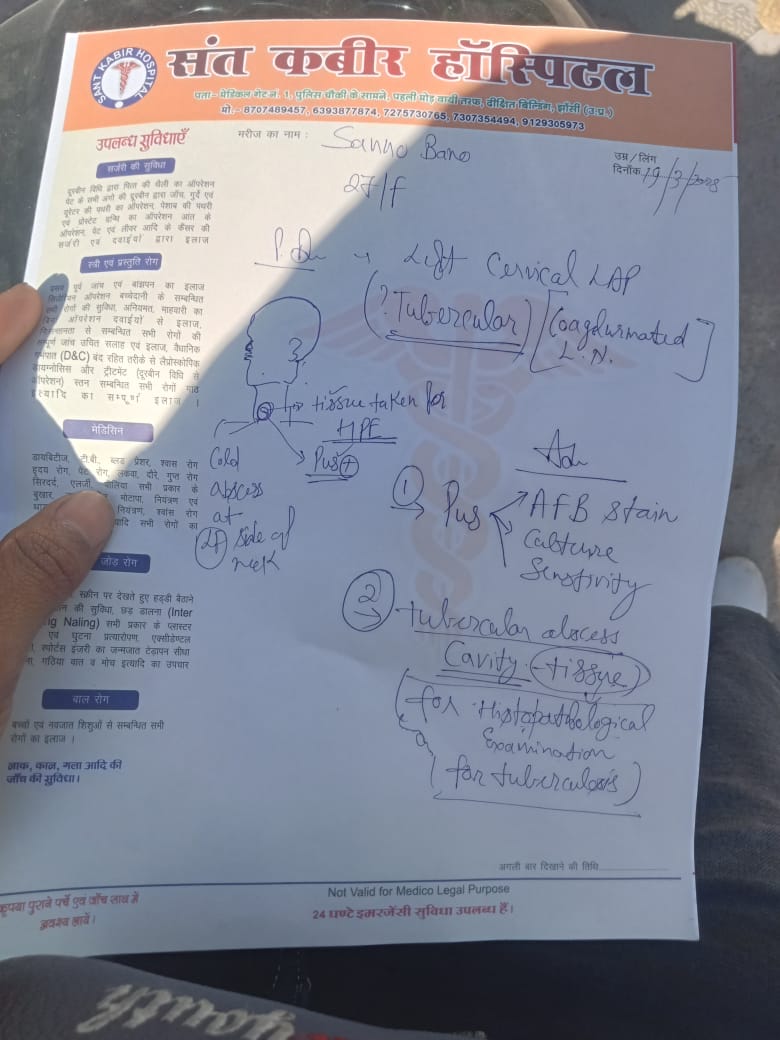 SANT KABIR HOSPITAL
संत कबीर हॉस्पिटल
पता:- मेडिकल गेट नं. 1, पुलिस चौकी के सामने, पहली मोड़ बायी तरफ, दीक्षित बिल्डिंग, झाँसी (उ.प्र.)
मो.:- 8707489457, 6393877874, 7275730765, 7307354494, 9129305973
उपलब्ध सुविधाएँ
मरीज का नाम :
Sanno Bano
27/f
उम्र/लिंग
दिनाँक
19/3/
सर्जरी की सुविधा
दूरबीन विधि द्वारा पित्त की थैली का ऑपरेशन
पेट के सभी अंगो की दूरबीन द्वारा जाँच, गुर्दे एवं
यूरेटर की पथरी का ऑपरेशन, पेशाब की पथरी
एवं प्रोस्टेट ग्रन्थि का ऑपरेशन आंत के
ऑपरेशन, पेट एवं लीवर आदि के कैंसर की
सर्जरी एवं दवाईयों द्वारा इलाज
स्त्री एवं प्रसूति रोग
पूर्व जांच एवं बांझपन का इलाज
ऑपरेशन बच्चेदानी के सम्बन्धित
रोगों की सुविधा, अनियमत, माहवारी का
ऑपरेशन दवाईयों से इलाज,
से सम्बन्धित सभी रोगों की
जांच उचित सलाह एवं इलाज, वैधानिक
(D&C) बंद रहित तरीके से लैप्रोस्कोपिक
और ट्रीटमेंट (दूरबीन विधि से
ऑपरेशन) स्तन सम्बन्धित सभी रोगों
इत्यादि का सम्पूर्ण इलाज ।
मेडिसिन
डायबिटीज, टी.बी., ब्लड प्रेशर, श्वास रोग
हृदय रोग, पेट रोग, लकवा, दौरे, गुप्त रोग
सिरदर्द, एलर्जी, सभी प्रकार के
बुखार, मोटापा, नियंत्रण एवं
नियंत्रण, श्वांस रोग
आदि सभी रोगों का
जोड़ रोग
स्क्रीन पर देखते हुए हड्डी बैठाने
की सुविधा, छड़ डालना (Inter
Naling) सभी प्रकार के प्लास्टर
एवं घुटना प्रत्यारोपण, एक्सीडेण्टल
स्पोर्टस इंजरी का जन्मजात टेड़ापन सीधा
गठिया वात व मोच इत्यादि का उपचार
बाल रोग
बच्चों एवं नवजात शिशुओं से सम्बन्धित सभी
रोगों का इलाज ।
नाक, कान, गला आदि की
जाँच की सुविधा।
Left Cervical LAP
(? Tubercular) [Coagdurmated
L.N.]
tissue taken for
HPE
Pus +
Cold
abscess
at
Lt side of
neck
Adv
1 Pus
AFB stain
Cabture
Senstivity
2 tubercular abscess
Cavity - tissue
(for Histopathological
Examination
(for tuberculosis)
अगली बार दिखाने की तिथि
Not Valid for Medico Legal Purpose
24 घण्टे इमरजेंसी सुविधा उपलब्ध हैं।
कृपया पुराने पर्चे एवं जाँच साथ में
अवश्य लायें।
youth